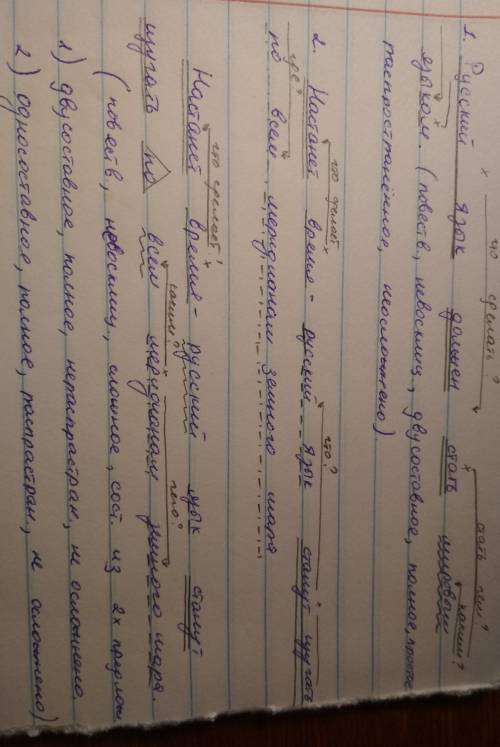 что делать?
стать чем?
каким?
1. Русский язык должен стать мировым
языком. (повеств, невосклиц, двусоставное, полное, простое
распространённое, неосложнено)
что сделает?
что?
2. Настанет время - русский язык станут изучать
где?
по всем меридианам земного шара
что сделает?
Настанет время - русский язык станут
изучать по всем меридианам земного шара.
каким?
чего?
(повеств, невосклиц, сложное, сост. из 2х предлож
1) двусоставное, полное, нераспрастран, не осложнено.
2) односоставное, полное, распрастран, не осложнено)